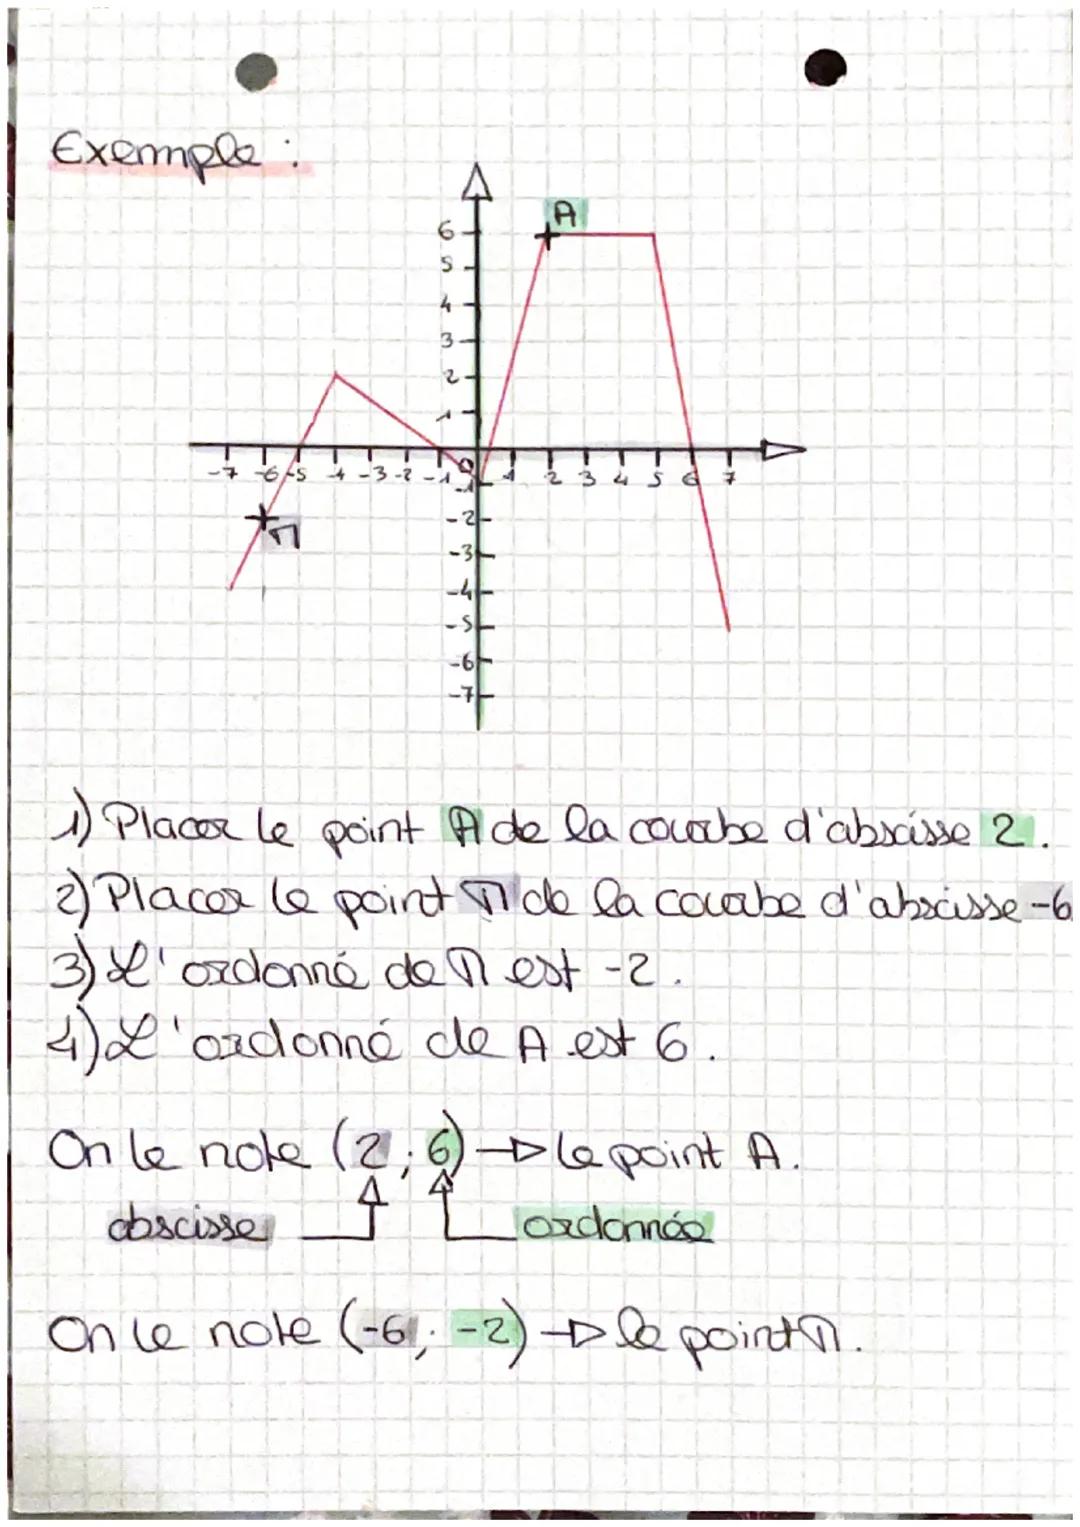 Exemple :
A
6
5
4
3
2
1
-7 -6 -5 -4 -3 -2 -1 0 1 2 3 4 5 6 7
-1
-2
M
-3
-4
-5
-6
-7
1) Placer le point A de la courbe d'abscisse 2.
2) Placer le point M de la courbe d'abscisse -6
3) L'ordonné de M est -2.
4) L'ordonné de A est 6.
On le note (2 ; 6) → le point A.
abscisse ordonnée
On le note (-6 ; -2) → le point M.